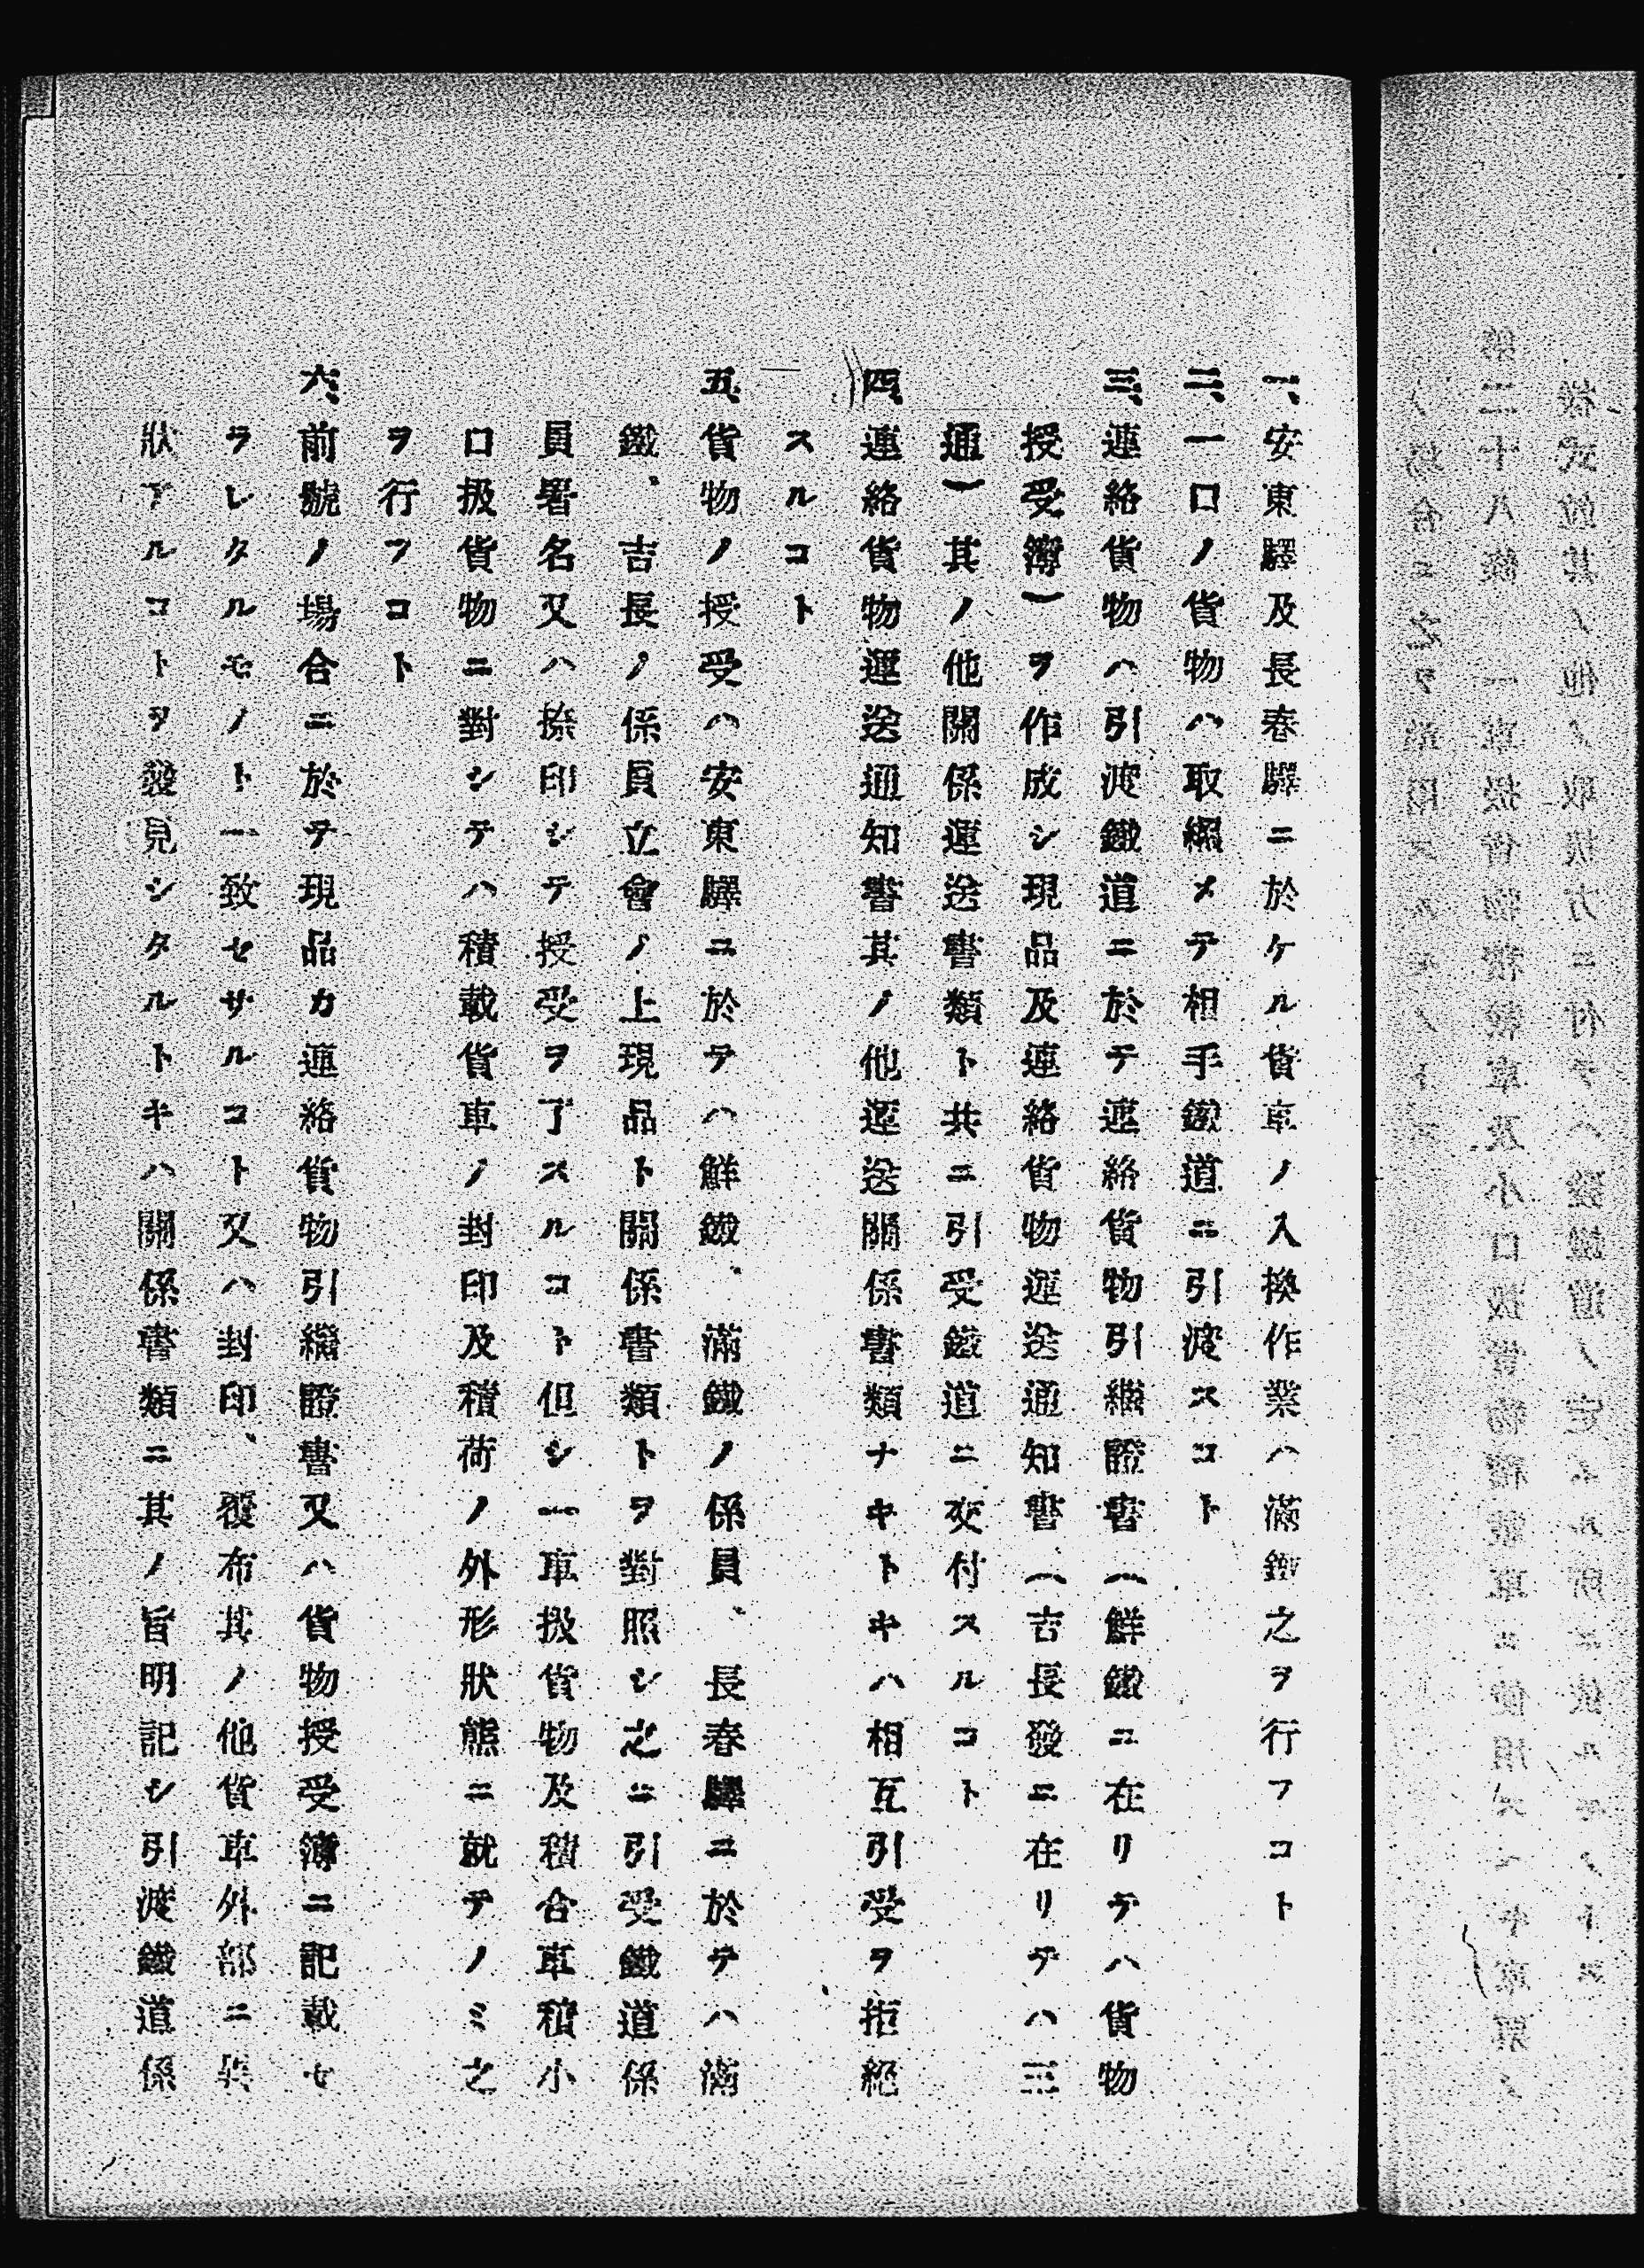 一、安東驛及長春驛ニ於ケル貨車ノ入換作業ハ滿鐵之ヲ行フコト
二、一口ノ貨物ハ取纒メテ相手鐵道ニ引渡スコト
三、連絡貨物ハ引渡鐵道ニ於テ連絡貨物引繼證書（鮮鐵ニ在リテハ貨物
授受簿）ヲ作成シ現品及連絡貨物運送通知書（吉長發ニ在リテハ三
通）其ノ他關係運送書類ト共ニ引受鐵道ニ交付スルコト
四、連絡貨物運送通知書其ノ他運送關係書類ナキトキハ相互引受ヲ拒絕
スルコト
五、貨物ノ授受ハ安東驛ニ於テハ鮮鐵、滿鐵ノ係員、長春驛ニ於テハ滿
鐵、吉長ノ係員立會ノ上現品ト關係書類トヲ對照シ之ニ引受鐵道係
員署名又ハ捺印シテ授受ヲ了スルコト但シ一車扱貨物及積合車積小
口扱貨物ニ對シテハ積載貨車ノ封印及積荷ノ外形狀態ニ就テノミ之
ヲ行フコト
六、前號ノ場合ニ於テ現品カ連絡貨物引繼證書又ハ貨物授受簿ニ記載セ
ラレタルモノト一致セサルコト又ハ封印、覆布其ノ他貨車外部ニ異
狀アルコトヲ發見シタルトキハ關係書類ニ其ノ旨明記シ引渡鐵道係